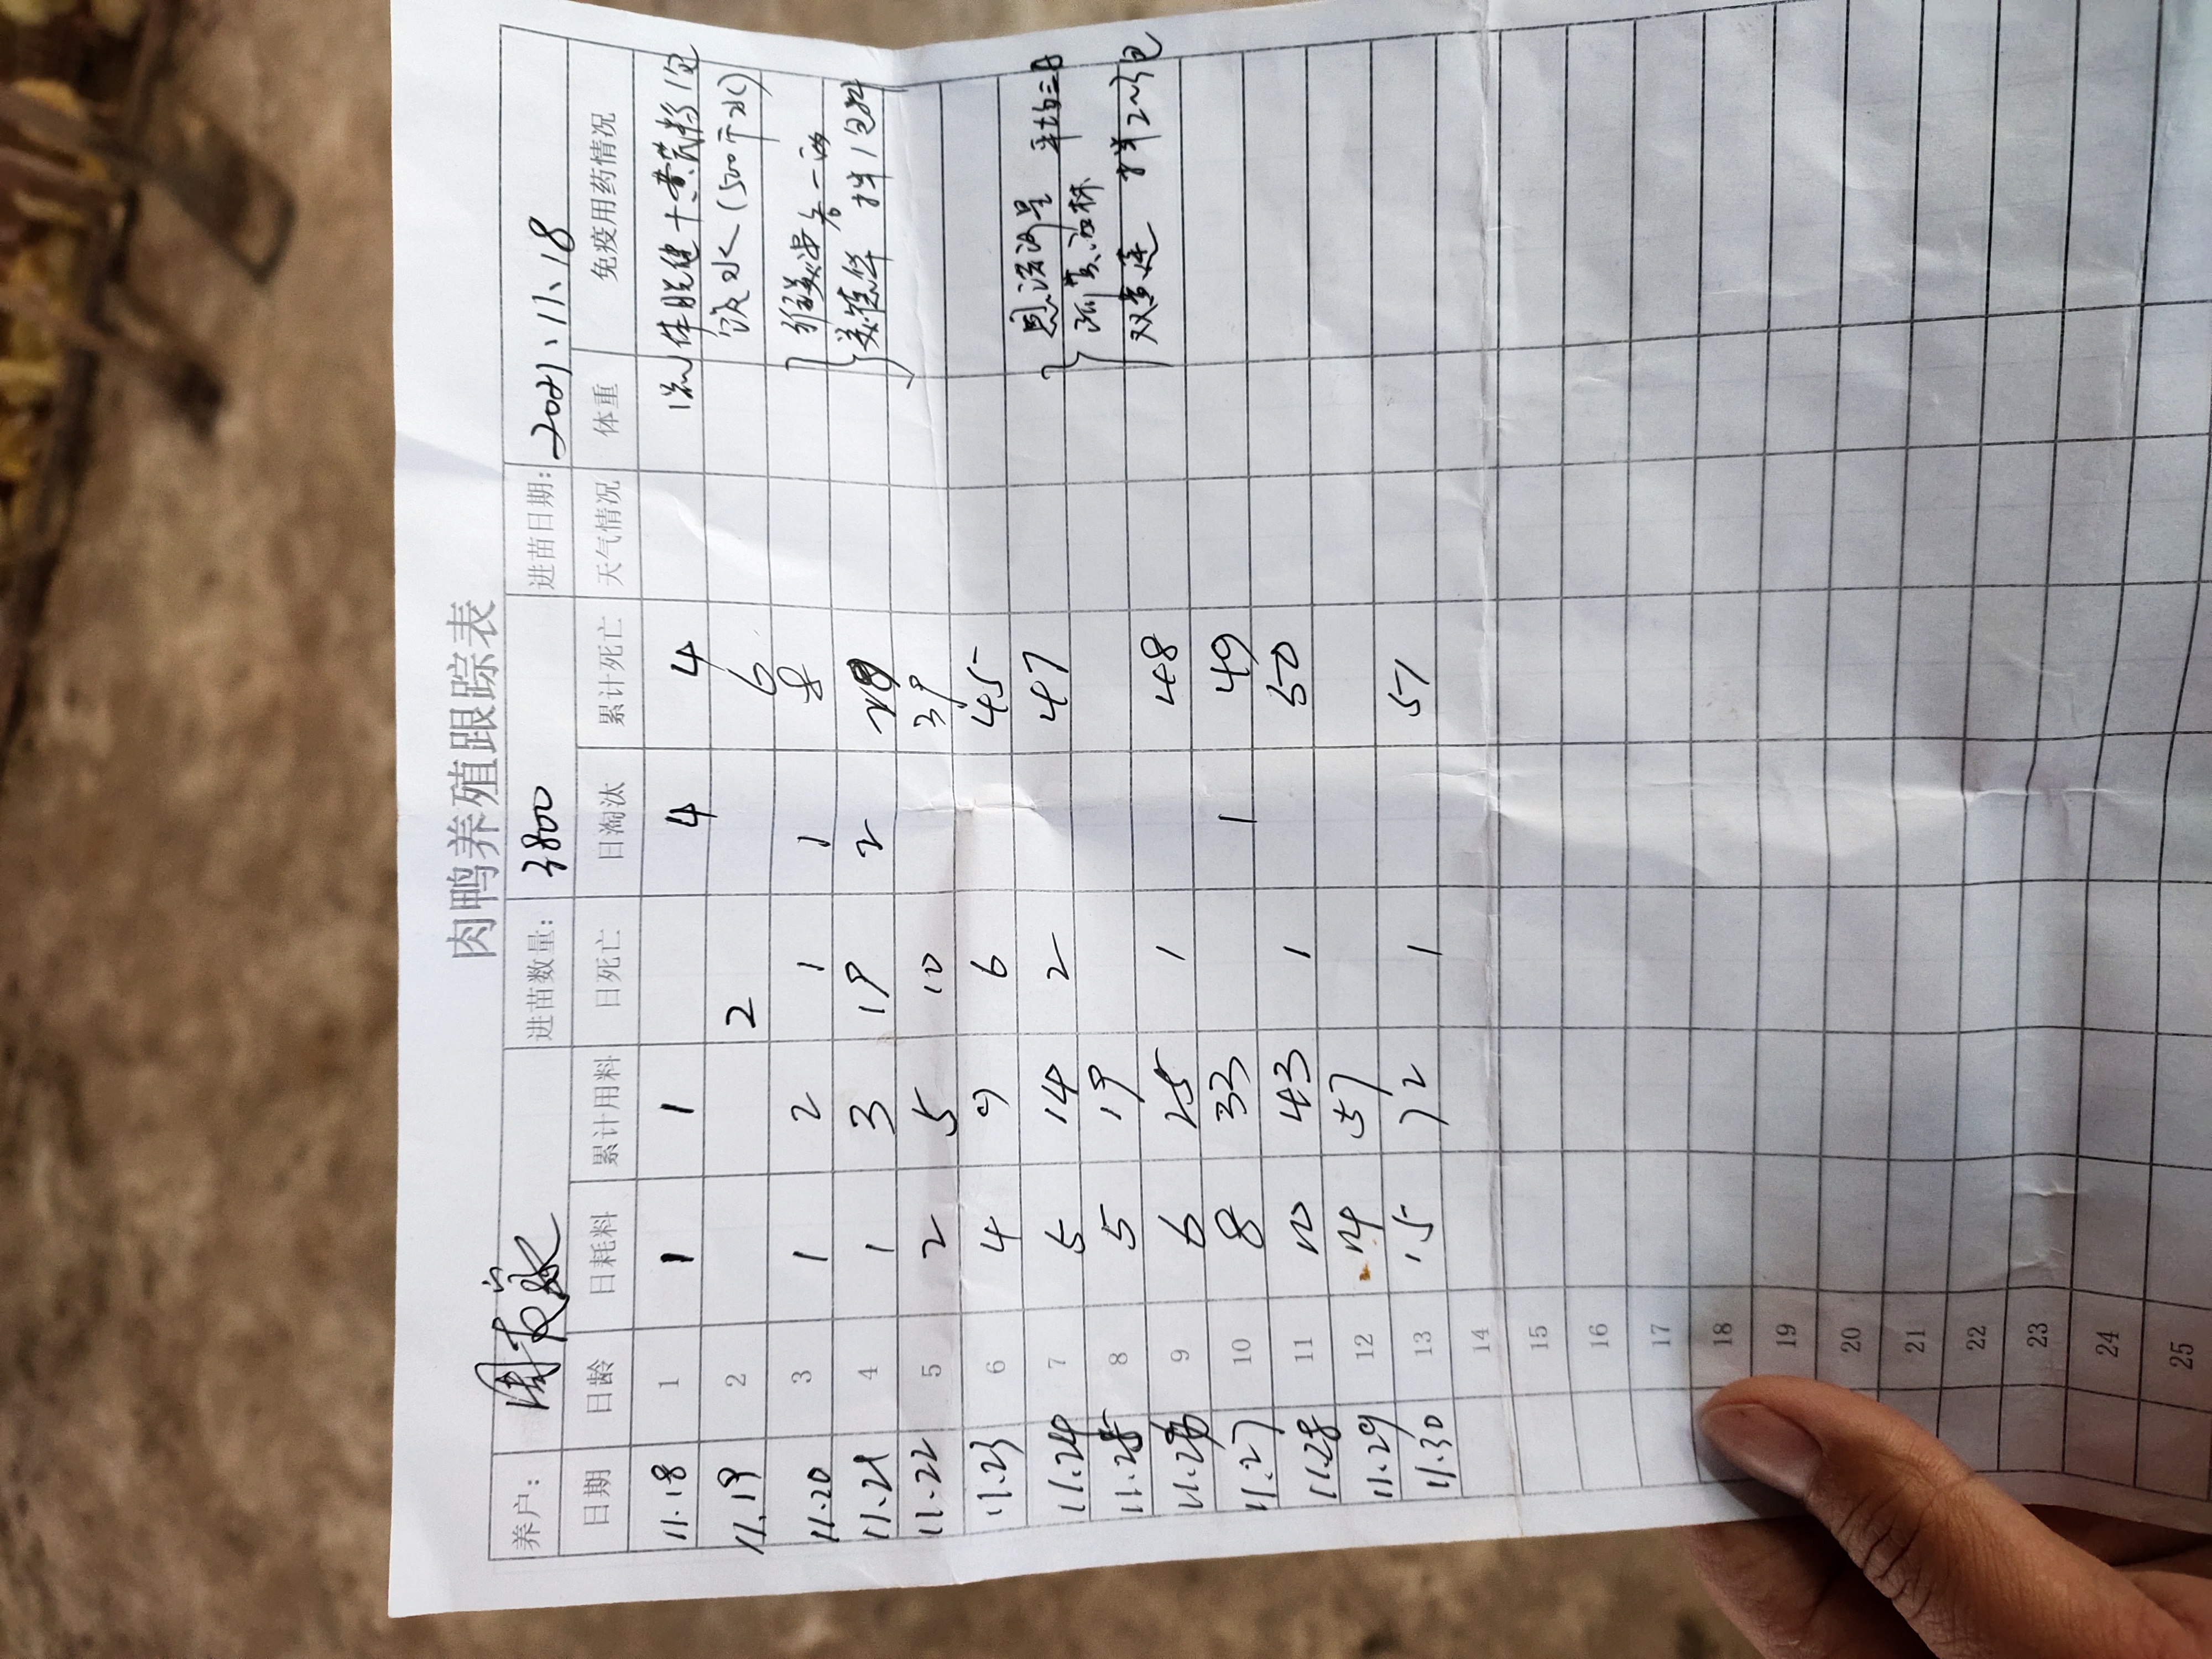 肉鸭养殖跟踪表
养户： 进苗数量： 3800 进苗日期： 2021.11.18
日期 日龄 日耗料 累计用料 日死亡 日淘汰 累计死亡 天气情况 体重 免疫用药情况
11.18 1 1 1 4 4 流体肽健+黄芪多 1包
11.19 2 2 6 饮水(500斤水)
11.20 3 1 2 1 1 8
11.21 4 1 3 19 2 1包
11.22 5 2 5 10 39
11.23 6 4 9 6 45
11.24 7 5 14 2 47 恩诺沙星
11.25 8 5 19
11.26 9 6 25 1 48 双黄连 2~3包
11.27 10 8 33 1 49
11.28 11 10 43 1 50
11.29 12 14 57
11.30 13 15 72 1 51
14
15
16
17
18
19
20
21
22
23
24
25